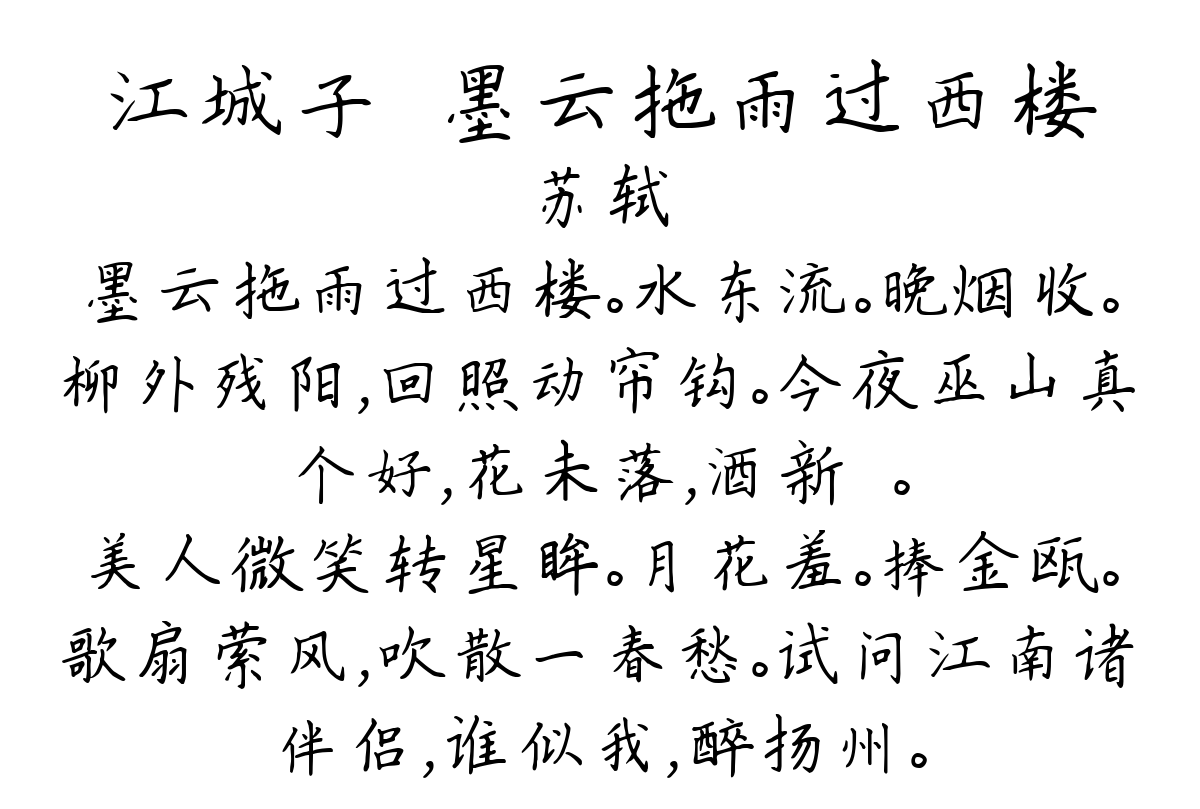 江城子 墨云拖雨过西楼
苏轼
墨云拖雨过西楼。水东流。晚烟收。
柳外残阳,回照动帘钩。今夜巫山真
个好,花未落,酒新 。
美人微笑转星眸。月花羞。捧金瓯。
歌扇萦风,吹散一春愁。试问江南诸
伴侣,谁似我,醉扬州。